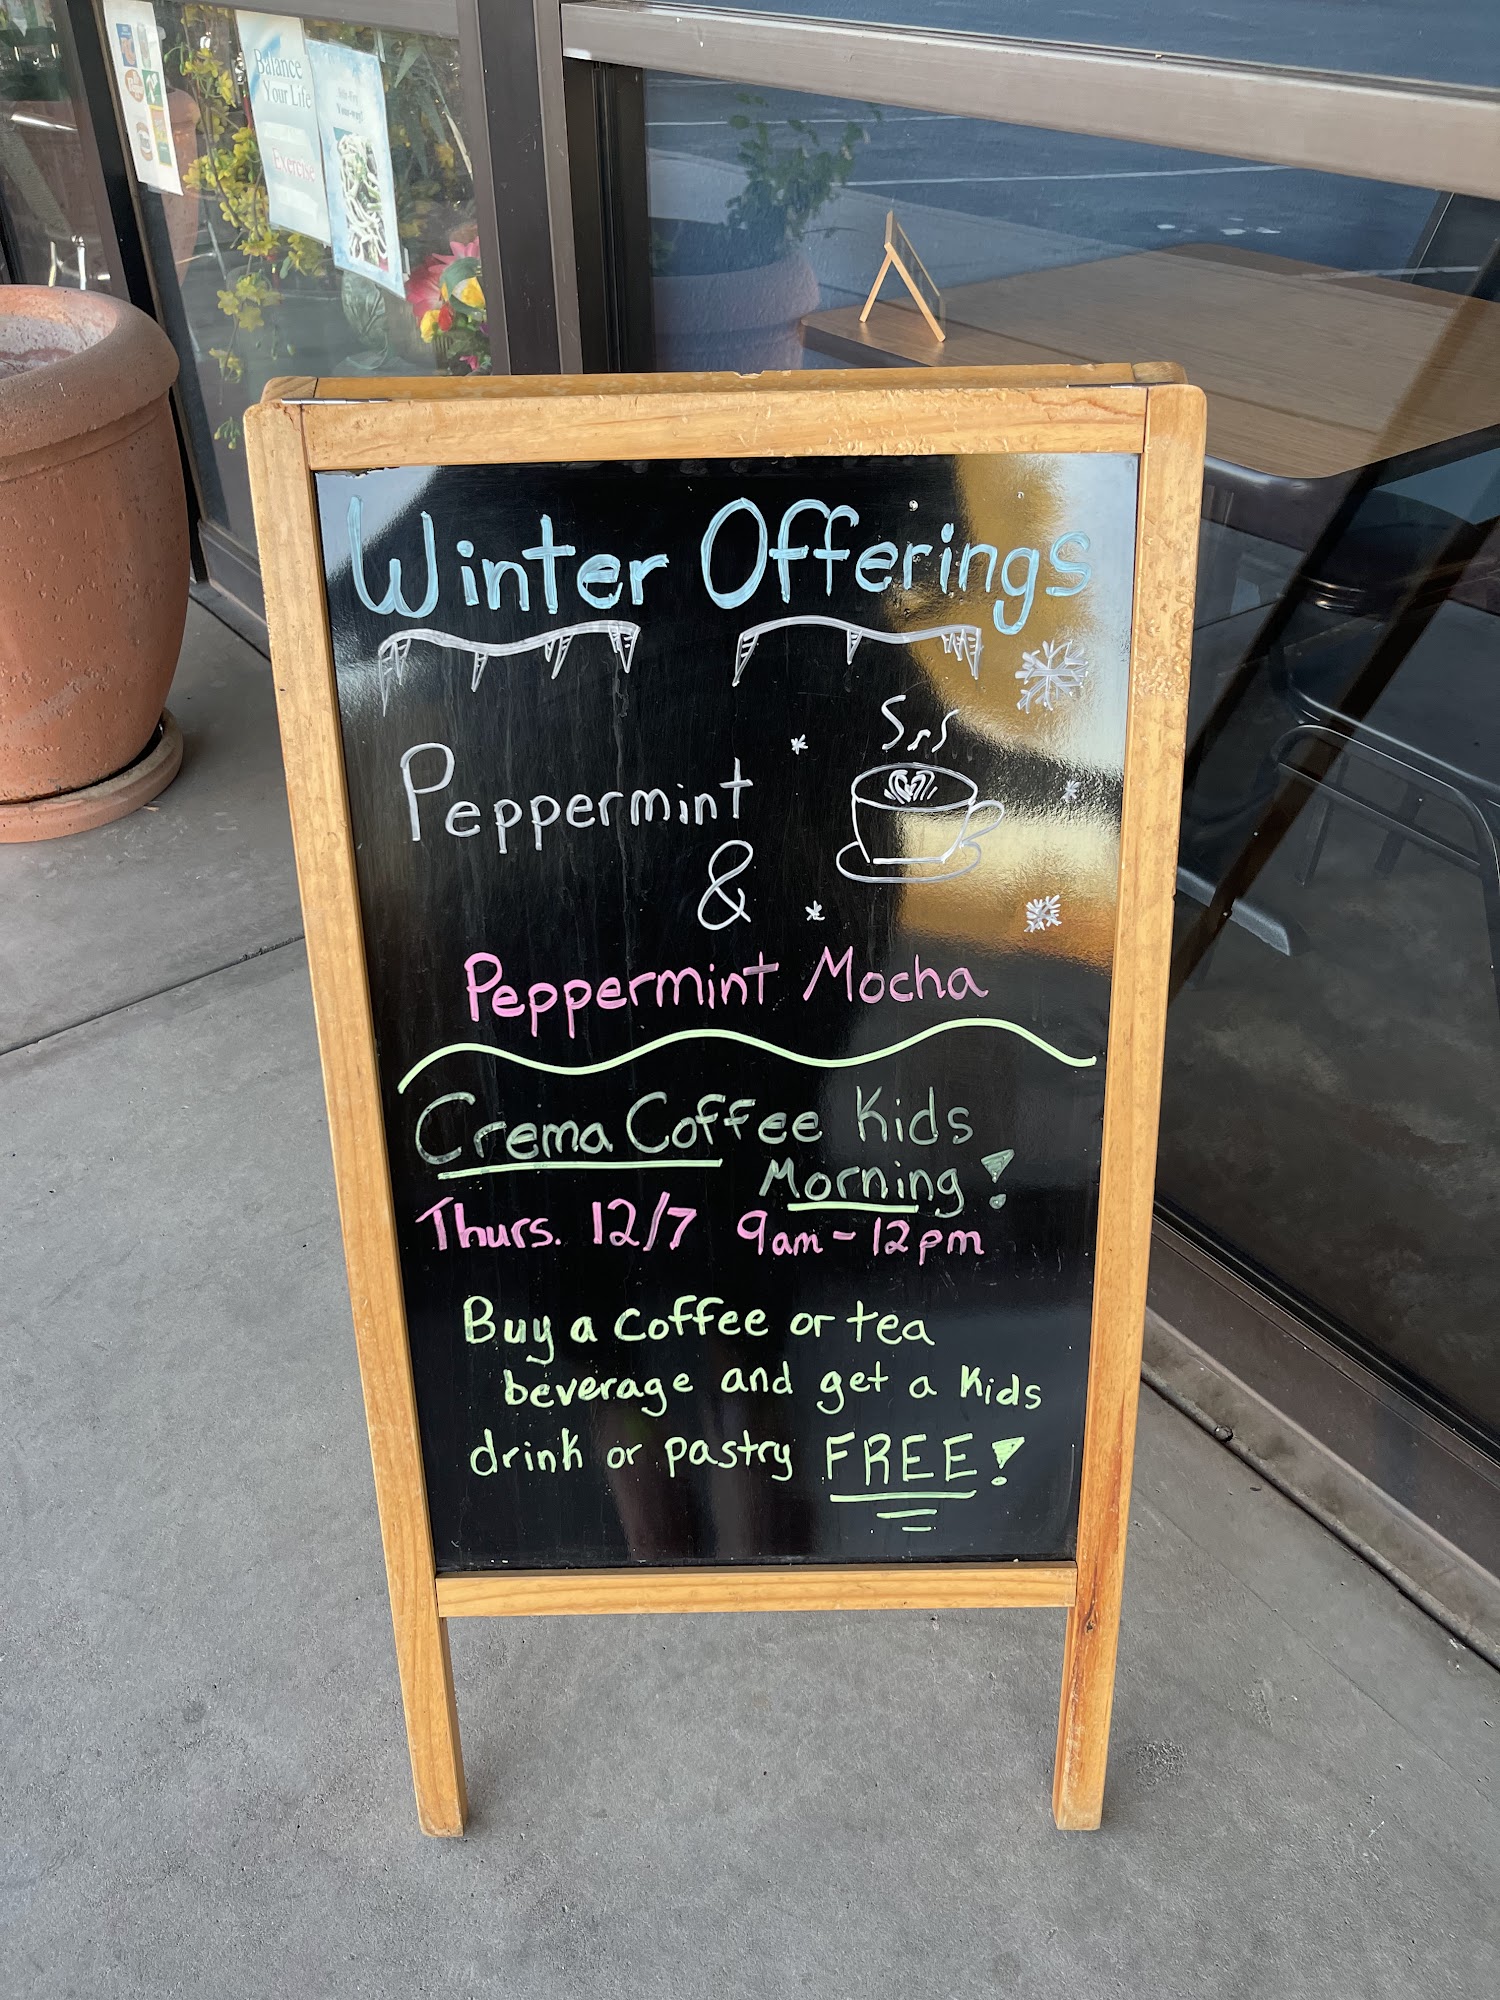 Balance
Your Life
Exercise
Winter Offerings
Peppermint
&
Peppermint Mocha
Crema Coffee Kids
Morning!
Thurs. 12/7 9am-12pm
Buy a coffee or tea
beverage and get a kids
drink or pastry FREE!